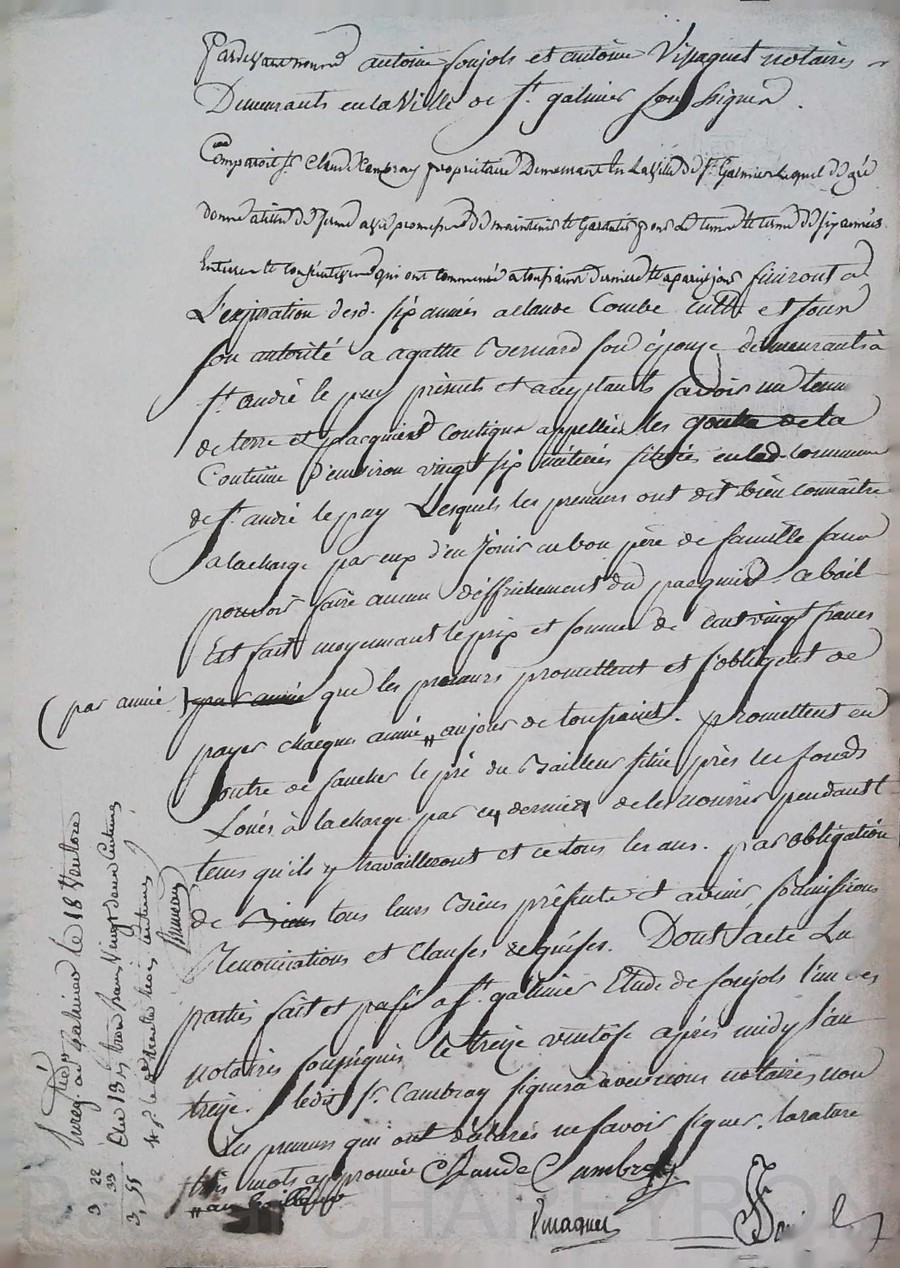 Pardevant nous antoine soujols et antoine Vissaguet notaires
Demeurants en la Ville de St. galmier sous signés.
Comparoit sr. Claude Cambray propriétaire Demeurant en La Ville de St. Galmier Lequel de gré
donne a titre de ferme avec promesse de maintenir et Garantir pour Le terme de six années
Entieres et consécutives qui ont commencé a toussaint derniere et a pareil jour finiront a
L'expiration desd. six années a claude Combe cultr. et sous
son autorité a agathe Bernard son épouse demeurants à
St. andré le puy présents et acceptants savoir un tenu
de terre et pacquiers contigus appellés les de la
Contenue d'environ vingt six métérées situées en lad. commune
de St. andré le puy Lesquels les preneurs ont dit bien connaître
a la charge par eux d'en Jouir en bon père de famille sans
pouvoir faire aucun déffrichement du pacquier. ce bail
Est fait moyennant le prix et somme de cent vingt francs
(par année) par année que les preneurs promettent et s'obligent de
payer chaque année # au jour de toussaint. promettent en
outre de faucher le pré du Bailleur situé près les fonds
Loués à la charge par ce dernier de les nourrir pendant le
tems qu'ils y travailleront et ce tous les ans. par obligation
de Biens tous leurs Biens présents et avenir, soumissions
Renonciations et Clauses requises. Dont acte Lu
parties fait et passé a St. galmier Etude de soujols l'un des
notaires soussignés le treize ventose après midy l'an
treize. ledit sr. Cambray signera avec nous notaires non
Les preneurs qui ont déclarés ne savoir signer. la rature
trois mots approuvée Claude Cambray
# au bailleur
Enregtré. a St. Galmier le 18 Ventose
An 13 trois francs Vingt deux Centimes
3 22
33
3, 55
PASCAL CHAREYRON